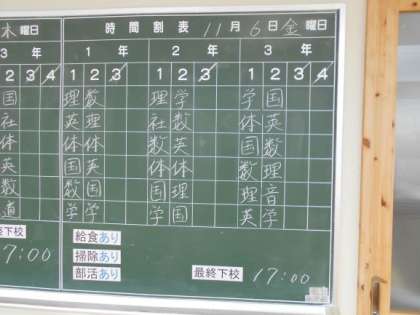 木曜日
時間割表 11月6日金曜日
3年 1年 2年 3年
1 2 3 4 1 2 3 1 2 3 1 2 3 4
国 理数 理学 学国
社 英理 社数 体英
体 体体 数英 国数
英 国英 体体 数理
数 数国 国理 理音
道 学学 学国 英学
終下校 給食あり
17:00 掃除あり
部活あり 最終下校 17:00